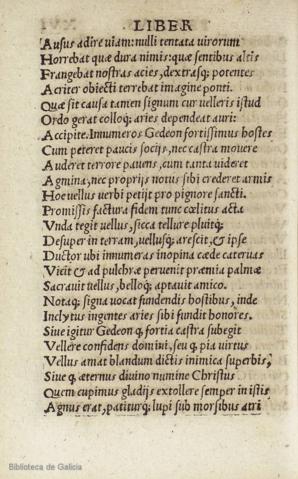 LIBER
Ausus adire uiam: nulli tentata uirorum
Horrebat quæ dura nimis: quæ sentibus altis
Frangebat nostras acies, dextrasq; potentes
Acriter obiecti terrebat imagine ponti.
Quæ sit causa tamen signum cur uelleris istud
Ordo gerat colloq; aries dependeat auri:
Accipite. Innumeros Gedeon fortissimus hostes
Cum peteret paucis socijs, nec castra mouere
Auderet terrore pauens, cum tanta uideret
Agmina, nec proprijs notus sibi crederet armis
Hoc uellus uerbi petijt pro pignore sancti.
Promissis factura fidem tunc cœlitus acta
Vnda tegit uellus, sicca tellure pluitq;
Desuper in terram, uellusq; arescit, & ipse
Ductor ubi innumeras inopina cæde cateruas
Vicit & ad pulchræ peruenit præmia palmæ
Sacrauit uellus, belloq; aptauit amico.
Notaq; signa uocat fundendis hostibus, inde
Inclytus ingentes aries sibi fundit honores.
Siue igitur Gedeon q, fortia castra subegit
Vellere confidens domini, seu q, pia uirtus
Vellus amat blandum dictis inimica superbis,
Siue q, æternus diuino numine Christus
Quem cupimus gladijs extollere semper in istis
Agnus erat, patiturq; lupi sub morsibus atri
Biblioteca de Galicia